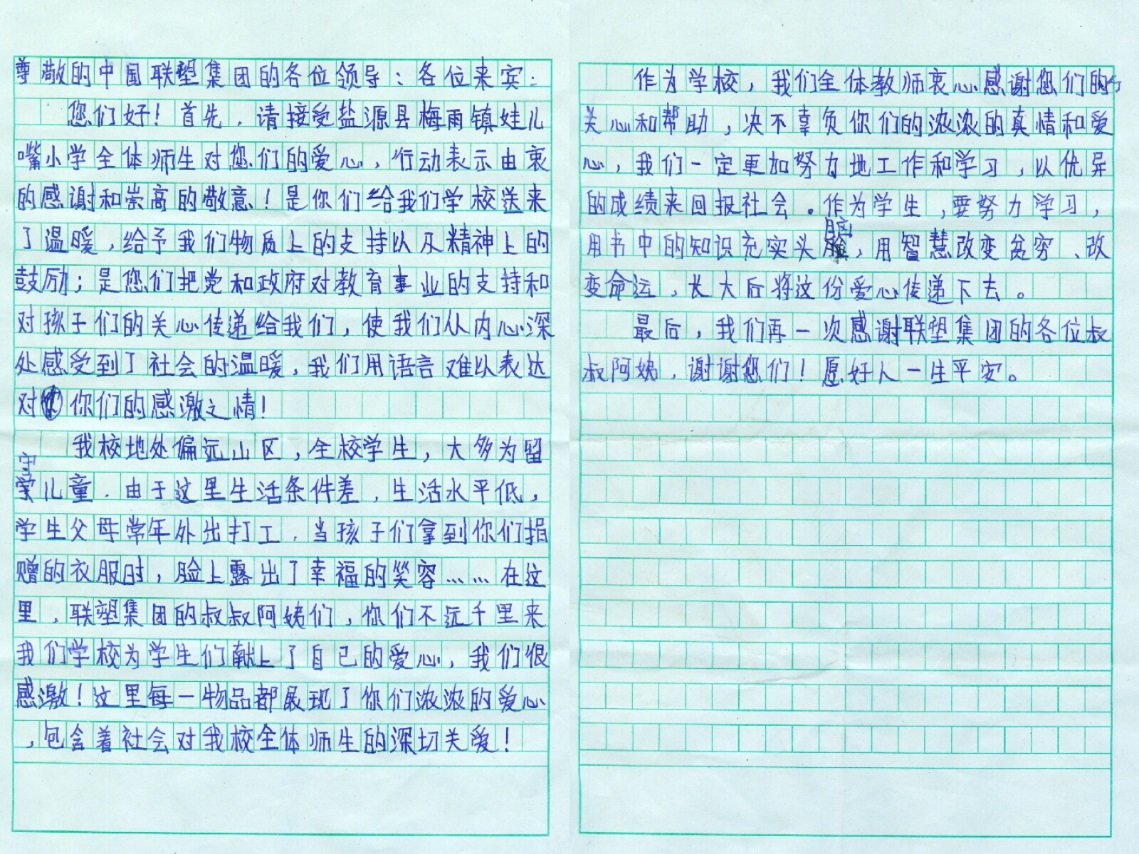 尊敬的中国联塑集团的各位领导：各位来宾：
您们好！首先，请接受盐源县梅雨镇娃儿
嘴小学全体师生对您们的爱心，行动表示由衷
的感谢和崇高的敬意！是你们给我们学校送来
了温暖，给予我们物质上的支持以及精神上的
鼓励；是您们把党和政府对教育事业的支持和
对孩子们的关心传递给我们，使我们从内心深
处感受到了社会的温暖，我们用语言难以表达
对你们的感激之情！
我校地处偏远山区，全校学生，大多为留
守儿童．由于这里生活条件差，生活水平低，
学生父母常年外出打工．当孩子们拿到你们捐
赠的衣服时，脸上露出了幸福的笑容……在这
里，联塑集团的叔叔阿姨们，你们不远千里来
我们学校为学生们献上了自己的爱心，我们很
感激！这里每一物品都展现了你们浓浓的爱心
，包含着社会对我校全体师生的深切关爱！
作为学校，我们全体教师衷心感谢您们的
关心和帮助，决不辜负你们的浓浓的真情和爱
心，我们一定更加努力地工作和学习，以优异
的成绩来回报社会。作为学生，要努力学习，
用书中的知识充实头脑，用智慧改变贫穷、改
变命运，长大后将这份爱心传递下去。
最后，我们再一次感谢联塑集团的各位叔
叔阿姨，谢谢您们！愿好人一生平安。